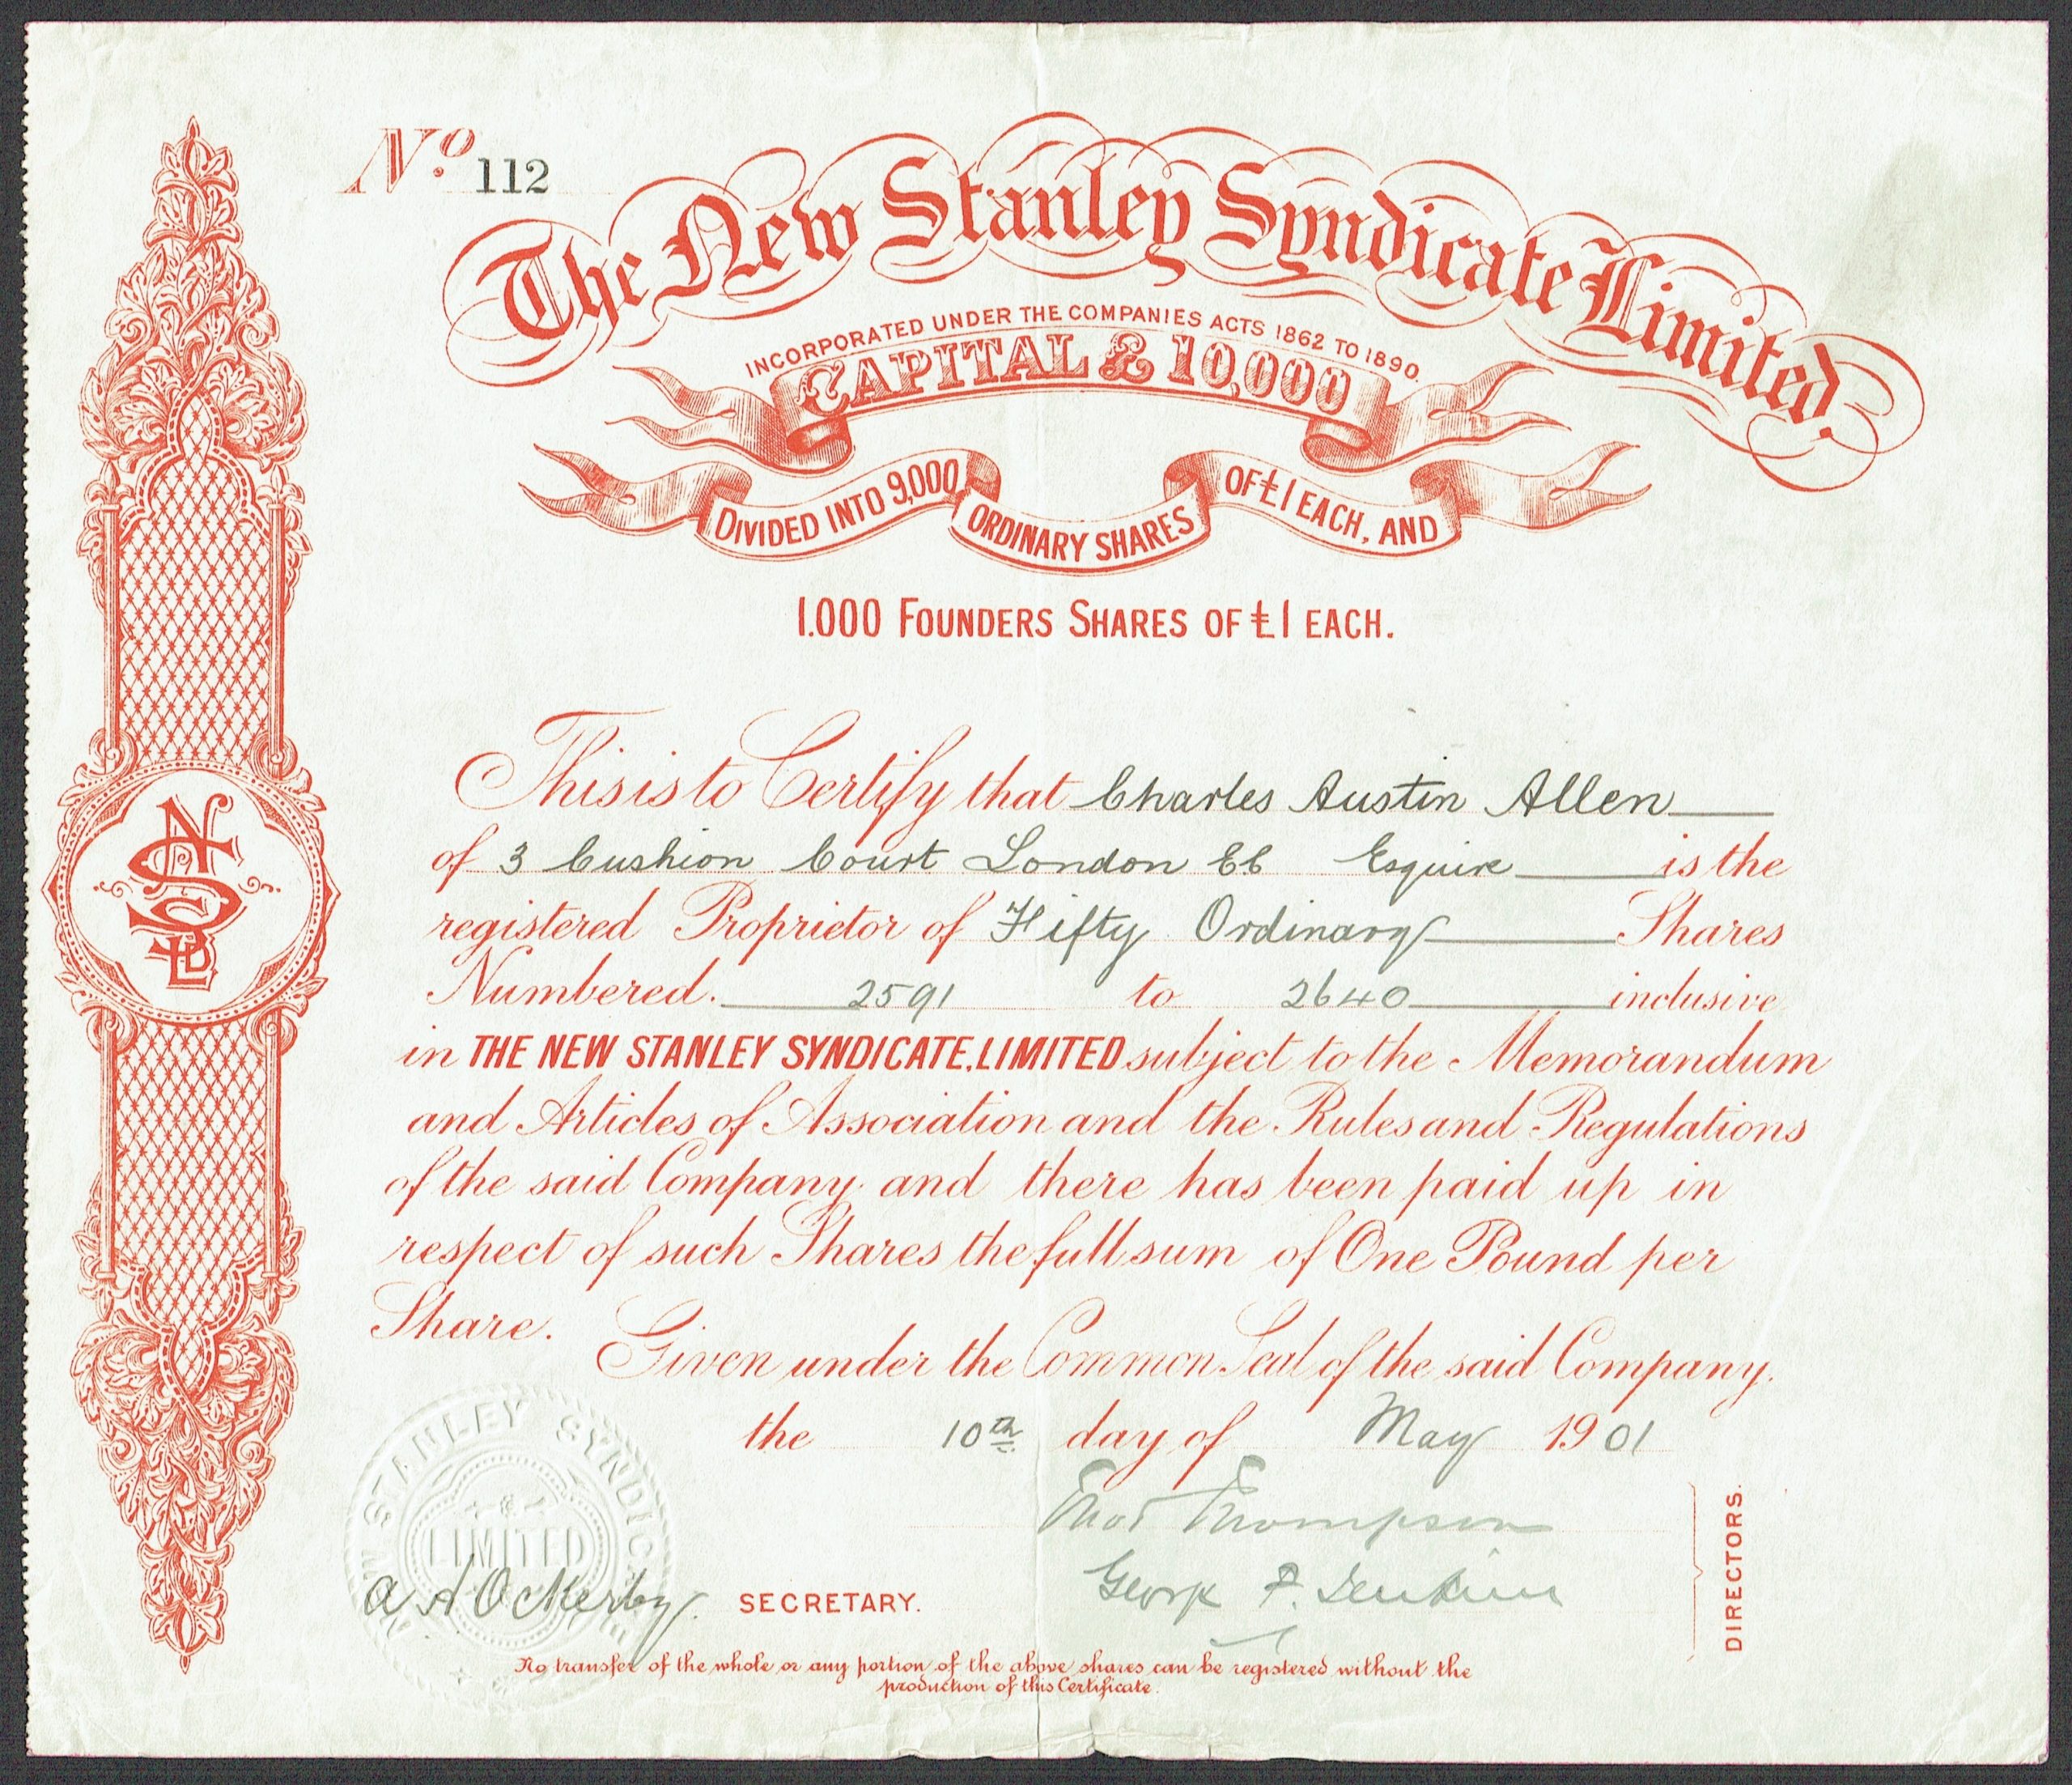 No. 112
The New Stanley Syndicate Limited.
INCORPORATED UNDER THE COMPANIES ACTS 1862 TO 1890.
CAPITAL £10,000
DIVIDED INTO 9,000 ORDINARY SHARES OF £1 EACH, AND
1.000 FOUNDERS SHARES OF £1 EACH.
This is to Certify that Charles Austin Allen
of 3 Cushion Court London EC Esquire is the
registered Proprietor of Fifty Ordinary Shares
Numbered. 2591 to 2640 inclusive
in THE NEW STANLEY SYNDICATE, LIMITED subject to the Memorandum
and Articles of Association and the Rules and Regulations
of the said Company and there has been paid up in
respect of such Shares the full sum of One Pound per
Share.
Given under the Common Seal of the said Company.
the 10th day of May 1901
NEW STANLEY SYNDICATE
LIMITED
Thompson
George F. Jenkins
DIRECTORS.
A A Ockerby. SECRETARY.
No transfer of the whole or any portion of the above shares can be registered without the
production of this Certificate.
NSL